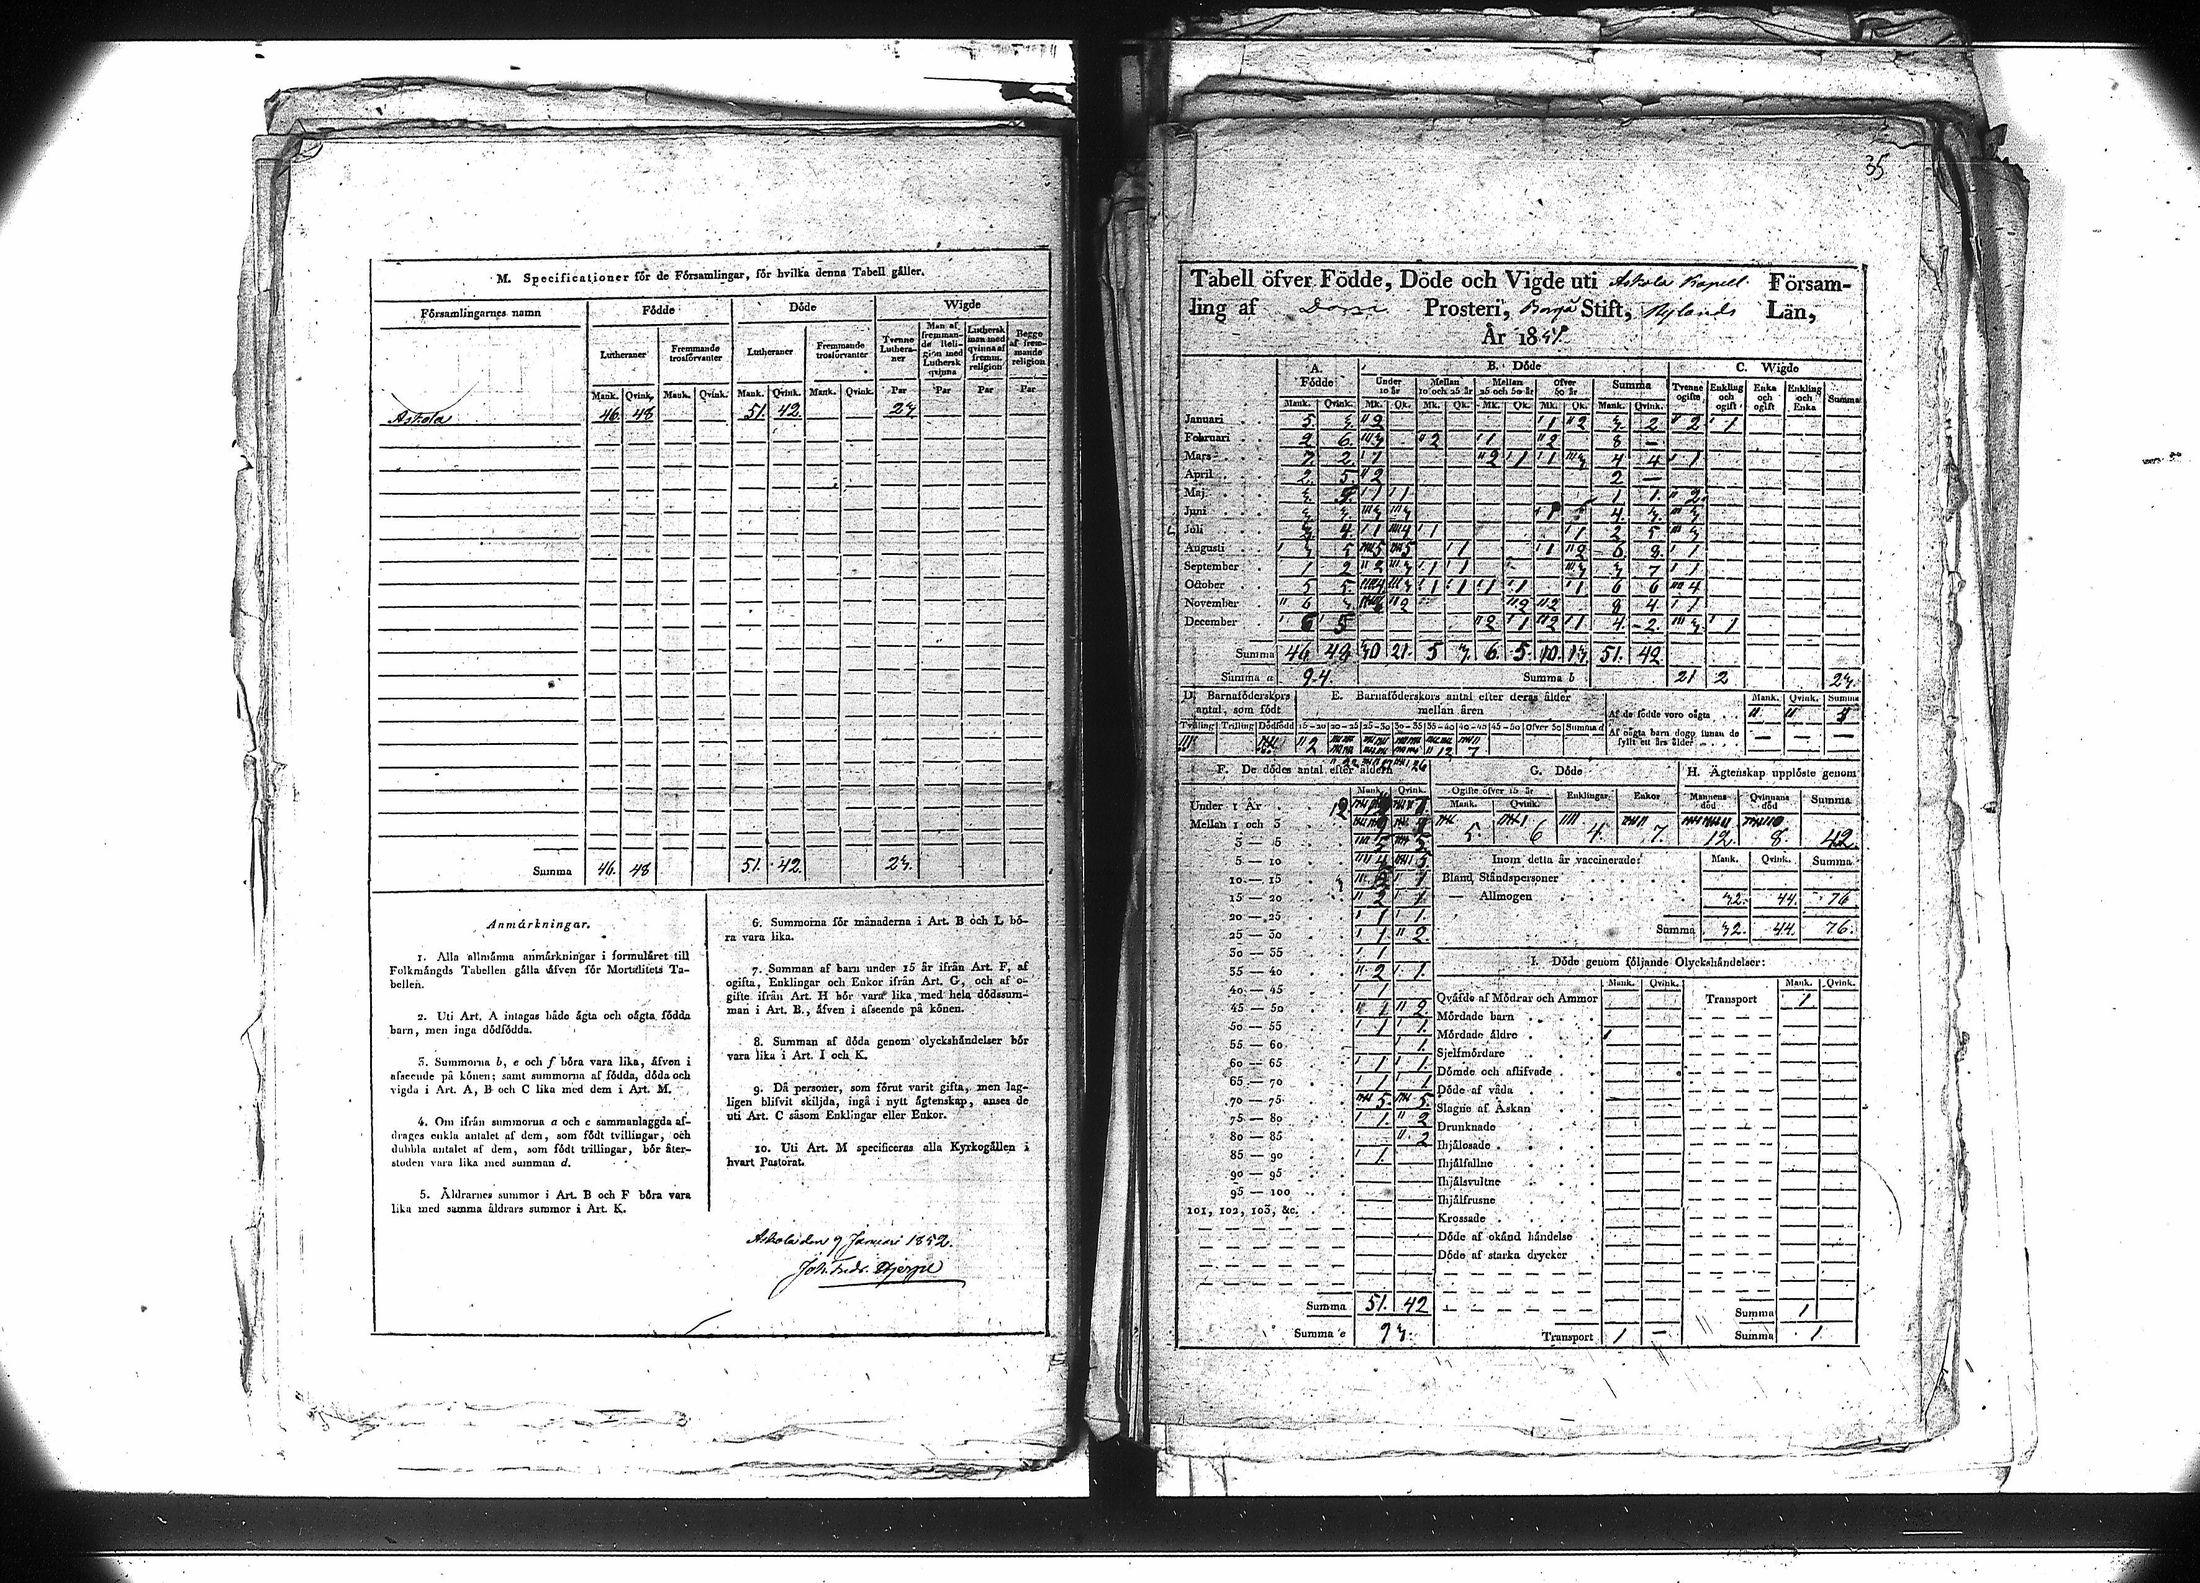 M. Specificationer för de Församlingar, för hvilka denna Tabell gäller.
Församlingarnes namn
Födde
Döde
Wigde
Lutheraner
Fremmande trosförvanter
Lutheraner
Fremmande trosförvanter
Tvenne Lutheraner
Man af fremmande Religion med Luthersk qvinna
Luthersk man med qvinna af fremm. religion
Begge af fremmande religion
Mank. Qvink. Mank. Qvink. Mank. Qvink. Mank. Qvink. Par Par Par Par
Askola 46. 48 51. 42. 23
Summa 46. 48 51. 42. 23.
Anmärkningar.
1. Alla allmänna anmärkningar i formuläret till
Folkmängds Tabellen gälla äfven för Mortalitets Ta-
bellen.
2. Uti Art. A intagas både ägta och oägta födda
barn, men inga dödfödda.
3. Summorna b, e och f böra vara lika, äfven i
afseende på könen; samt summorna af födda, döda och
vigda i Art. A, B och C lika med dem i Art. M.
4. Om ifrån summorna a och c sammanlaggda af-
drages enkla antalet af dem, som födt tvillingar, och
dubbla antalet af dem, som födt trillingar, bör åter-
stoden vara lika med summan d.
5. Åldrarnes summor i Art. B och F böra vara
lika med samma åldrars summor i Art. K.
6. Summorna för månaderna i Art. B och L bö-
ra vara lika.
7. Summan af barn under 15 år ifrån Art. F, af
ogifta, Enklingar och Enkor ifrån Art. G, och af o-
gifte ifrån Art. H bör vara lika med hela dödssum-
man i Art. B., äfven i afseende på könen.
8. Summan af döda genom olyckshändelser bör
vara lika i Art. I och K.
9. Då personer, som förut varit gifta, men lag-
ligen blifvit skiljda, ingå i nytt ägtenskap, anses de
uti Art. C såsom Enklingar eller Enkor.
10. Uti Art. M specificeras alla Kyrkogällen i
hvart Pastorat.
Askola den 9 Januari 1852.
35
Tabell öfver Födde, Döde och Vigde uti Askola Kapell Försam-
ling af Prosteri, Borgå Stift, Nylands Län,
År 1851.
A. Födde
B. Döde
C. Wigde
Under 10 år
Mellan 10 och 25 år
Mellan 25 och 50 år
Öfver 50 år
Summa
Tvenne ogifte
Enkling och ogift
Enka och ogift
Enkling och Enka
Summa
Mank. Qvink. Mk. Qk. Mk. Qk. Mk. Qk. Mk. Qk. Mank. Qvink.
Januari 5 3 2 1 2 3 2 2 1
Februari 2 6 3 2 1 2 8 —
Mars 7 2 1 2 1 1 3 4 4 1
April 2 5 2 2 —
Maj 3 1 1 1 1 2
Juni 3 3 3 3 4 3 3
Juli 4 1 4 1 1 2 5 3
Augusti 3 5 5 5 1 1 2 6 8 1
September 1 2 2 3 1 1 3 3 7 1
October 5 5 4 3 1 1 1 1 1 6 6 4
November 6 3 6 2 2 2 8 4 1
December 6 5 2 1 2 1 4 2 3 1
Summa 46 48 30 21 5 3 6 5 10 13 51. 42
Summa a 94. Summa b 21 2 23.
D. Barnaföderskors antal, som födt
Tvilling Trilling Dödfödd
E. Barnaföderskors antal efter deras ålder mellan åren
15–20 20–25 25–30 30–35 35–40 40–45 45–50 Öfver 50 Summa d
2 22 26 12 7
Mank. Qvink. Summa
Af de födde voro oägta
Af oägta barn dogo innan de fyllt ett års ålder — — —
F. De dödes antal efter åldern
Mank. Qvink.
Under 1 År
Mellan 1 och 3
3 — 5 5 2
5 — 10 4 5
10 — 15 1
15 — 20 2 1
20 — 25 1 1
25 — 30 1 2
30 — 35 1
35 — 40 2 1
40 — 45 1
45 — 50 1 2
50 — 55 1 1
55 — 60 1
60 — 65 1 1
65 — 70 1 1
70 — 75 5 5
75 — 80 1 2
80 — 85 2
85 — 90 1
90 — 95
95 — 100
101, 102, 103, &c.
Summa 51. 42
Summa e 93.
G. Döde
Ogifte öfver 15 år
Mank. Qvink. Enklingar Enkor
5. 6 4. 7.
H. Ägtenskap upplöste genom
Mannens död Qvinnans död Summa
12. 8.
Inom detta år vaccinerade: Mank. Qvink. Summa
Bland Ståndspersoner
— Allmogen 32. 44. 76
Summa 32. 44. 76.
I. Döde genom följande Olyckshändelser:
Mank. Qvink. Mank. Qvink.
Qväfde af Mödrar och Ammor
Transport 1
Mördade barn
Mördade äldre 1
Sjelfmördare
Dömde och aflifvade
Döde af våda
Slagne af Åskan
Drunknade
Ihjälosade
Ihjälfallne
Ihjälsvultne
Ihjälfrusne
Krossade
Döde af okänd händelse
Döde af starka drycker
Summa 1
Transport 1 —
Summa 1